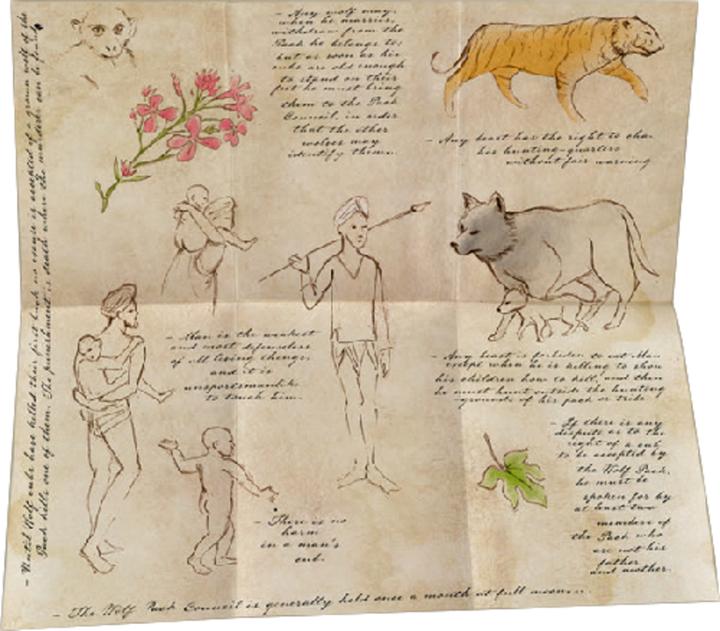 - Any wolf may,
when he marries,
withdraw from the
Pack he belongs to;
but as soon as his
cubs are old enough
to stand on their
feet he must bring
them to the Pack
Council, in order
that the other
wolves may
identify them.
- Any beast has the right to change
his hunting-quarters
without fair warning
- Man is the weakest
and most defenseless
of all living things,
and it is
unsportsmanlike
to touch him.
- Any beast is forbidden to eat Man
except when he is killing to show
his children how to kill, and then
he must hunt outside the hunting
grounds of his pack or tribe
- If there is any
dispute as to the
right of a cub
to be accepted by
the Wolf Pack,
he must be
spoken for by
at least two
members of
the Pack who
are not his
father
and mother.
- There is no
harm
in a man's
cub.
- The Wolf Pack Council is generally held once a month at full moon
- Until Wolf cubs have killed their first buck no excuse is accepted if a grown wolf of the
Pack kills one of them. The punishment is death where the murderer can be found